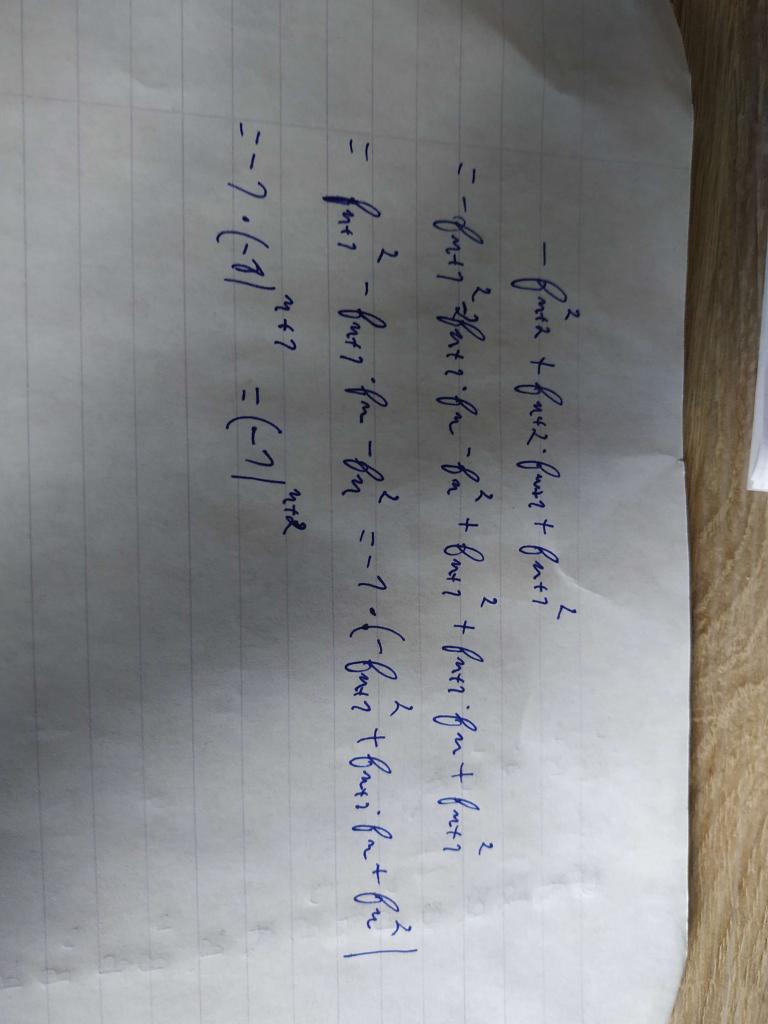 -f_{n+2}^2 + f_{n+2} · f_{n+1} + f_{n+1}^2
= -f_{n+1}^2 - 2f_{n+1} · f_n - f_n^2 + f_{n+1}^2 + f_{n+1} · f_n + f_{n+1}^2
= f_{n+1}^2 - f_{n+1} · f_n - f_n^2 = -1 · (-f_{n+1}^2 + f_{n+1} · f_n + f_n^2)
= -1 · (-1)^{n+1} = (-1)^{n+2}